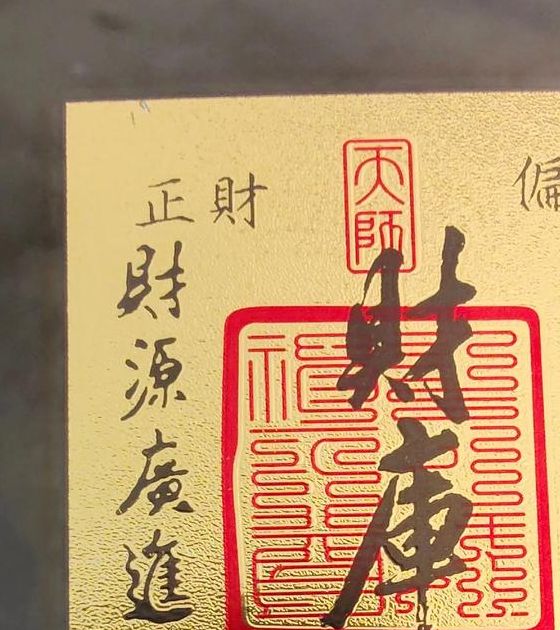 正財
偏
天師
財庫
財源廣進